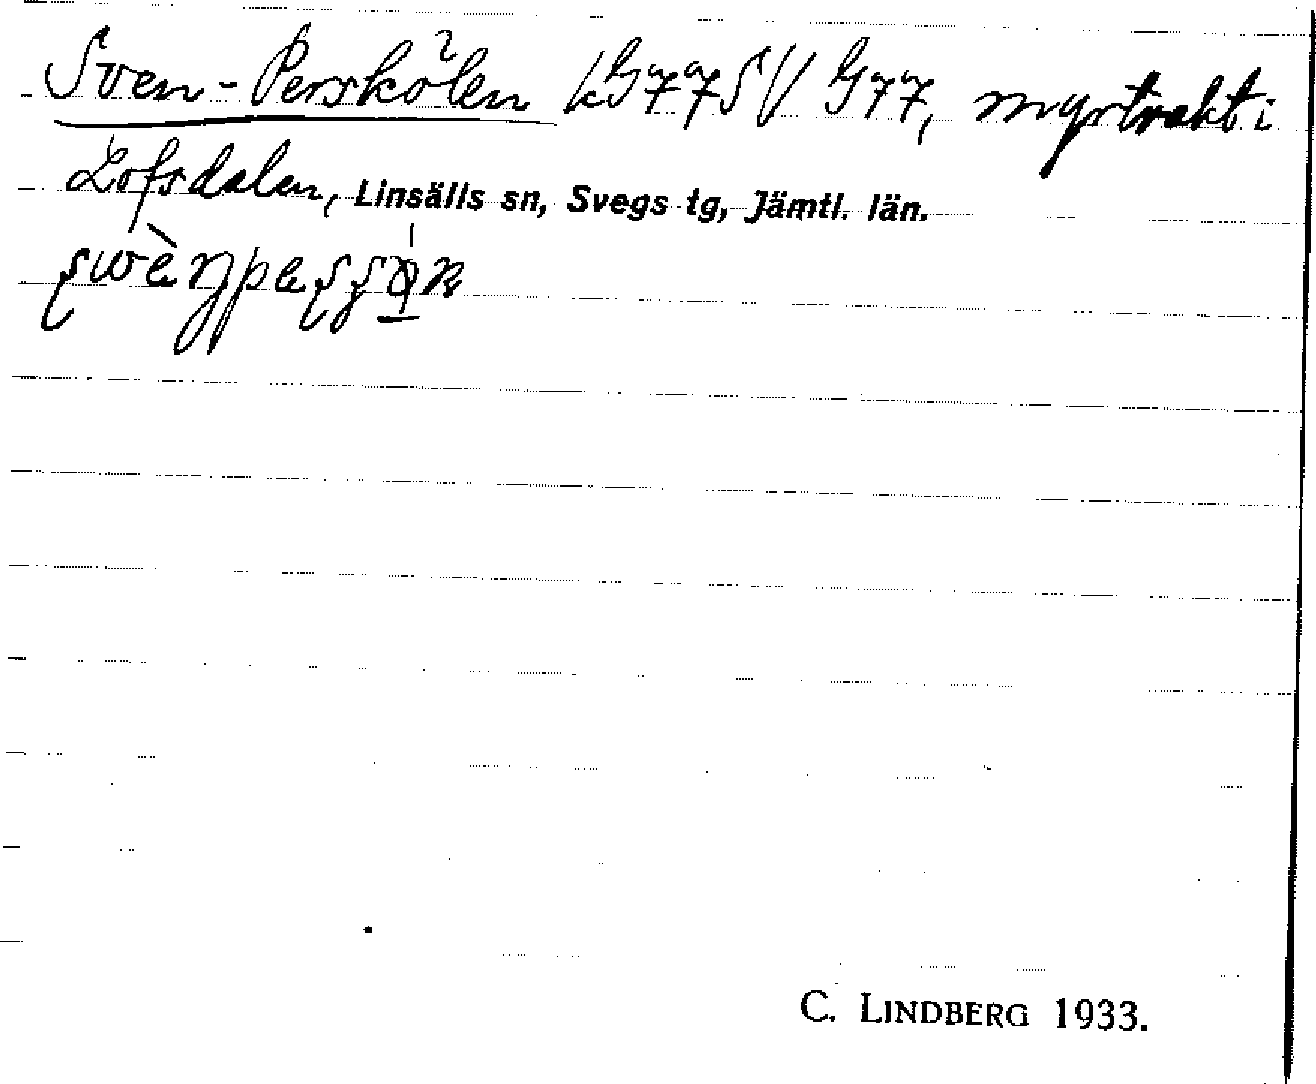 Sven-Perskölen kG77SV G77, myrtrakt i
Lofsdalen, Linsälls sn, Svegs tg, Jämtl. län.
C. LINDBERG 1933.